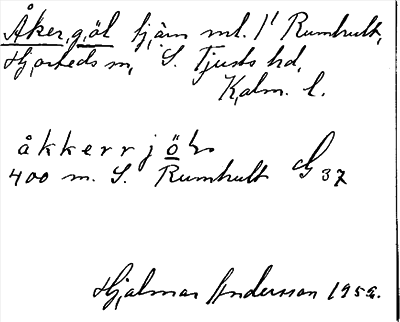 Åkergöl tjärn ml. 1/1 Rumhult,
Hjorteds sn, S. Tjusts hd,
Kalm. l.
åkkerrjöl
400 m. S. Rumhult G 37
Hjalmar Andersson 1952.